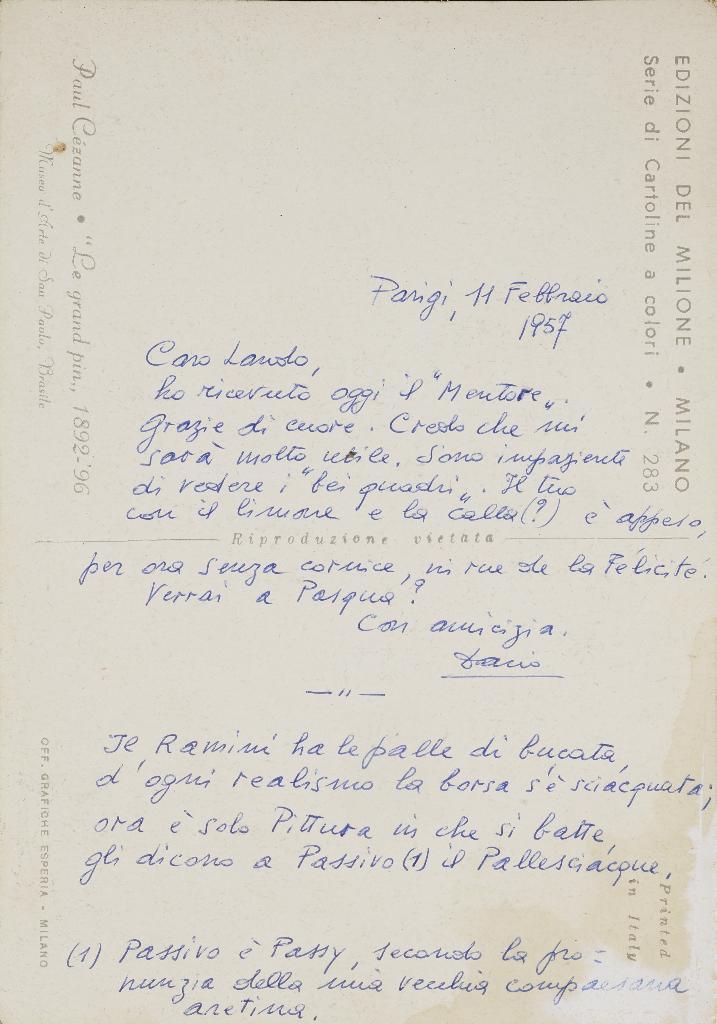 EDIZIONI DEL MILIONE • MILANO
Serie di Cartoline a colori • N. 283
Paul Cézanne • "Le grand pin„ 1892-'96
Museo d'Arte di San Paolo, Brasile
Parigi, 11 Febbraio
1957
Caro Lando,
ho ricevuto oggi il "Mentore„.
Grazie di cuore. Credo che mi
sarà molto utile. Sono impaziente
di vedere i "bei quadri„. Il tuo
con il limone e la calla(?) è appeso,
Riproduzione vietata
per ora senza cornice, in rue de la Félicité.
Verrai a Pasqua?
Con amicizia.
Dario
—"—
Il Ramini ha le palle di bucata,
d'ogni realismo la borsa s'è sciacquata;
ora è solo Pittura in che si batte,
gli dicono a Passivo(1) il Pallesciacque.
(1) Passivo è Passy, secondo la pro=
nunzia della mia vecchia compaesana
aretina.
OFF. GRAFICHE ESPERIA - MILANO
Printed
in Italy